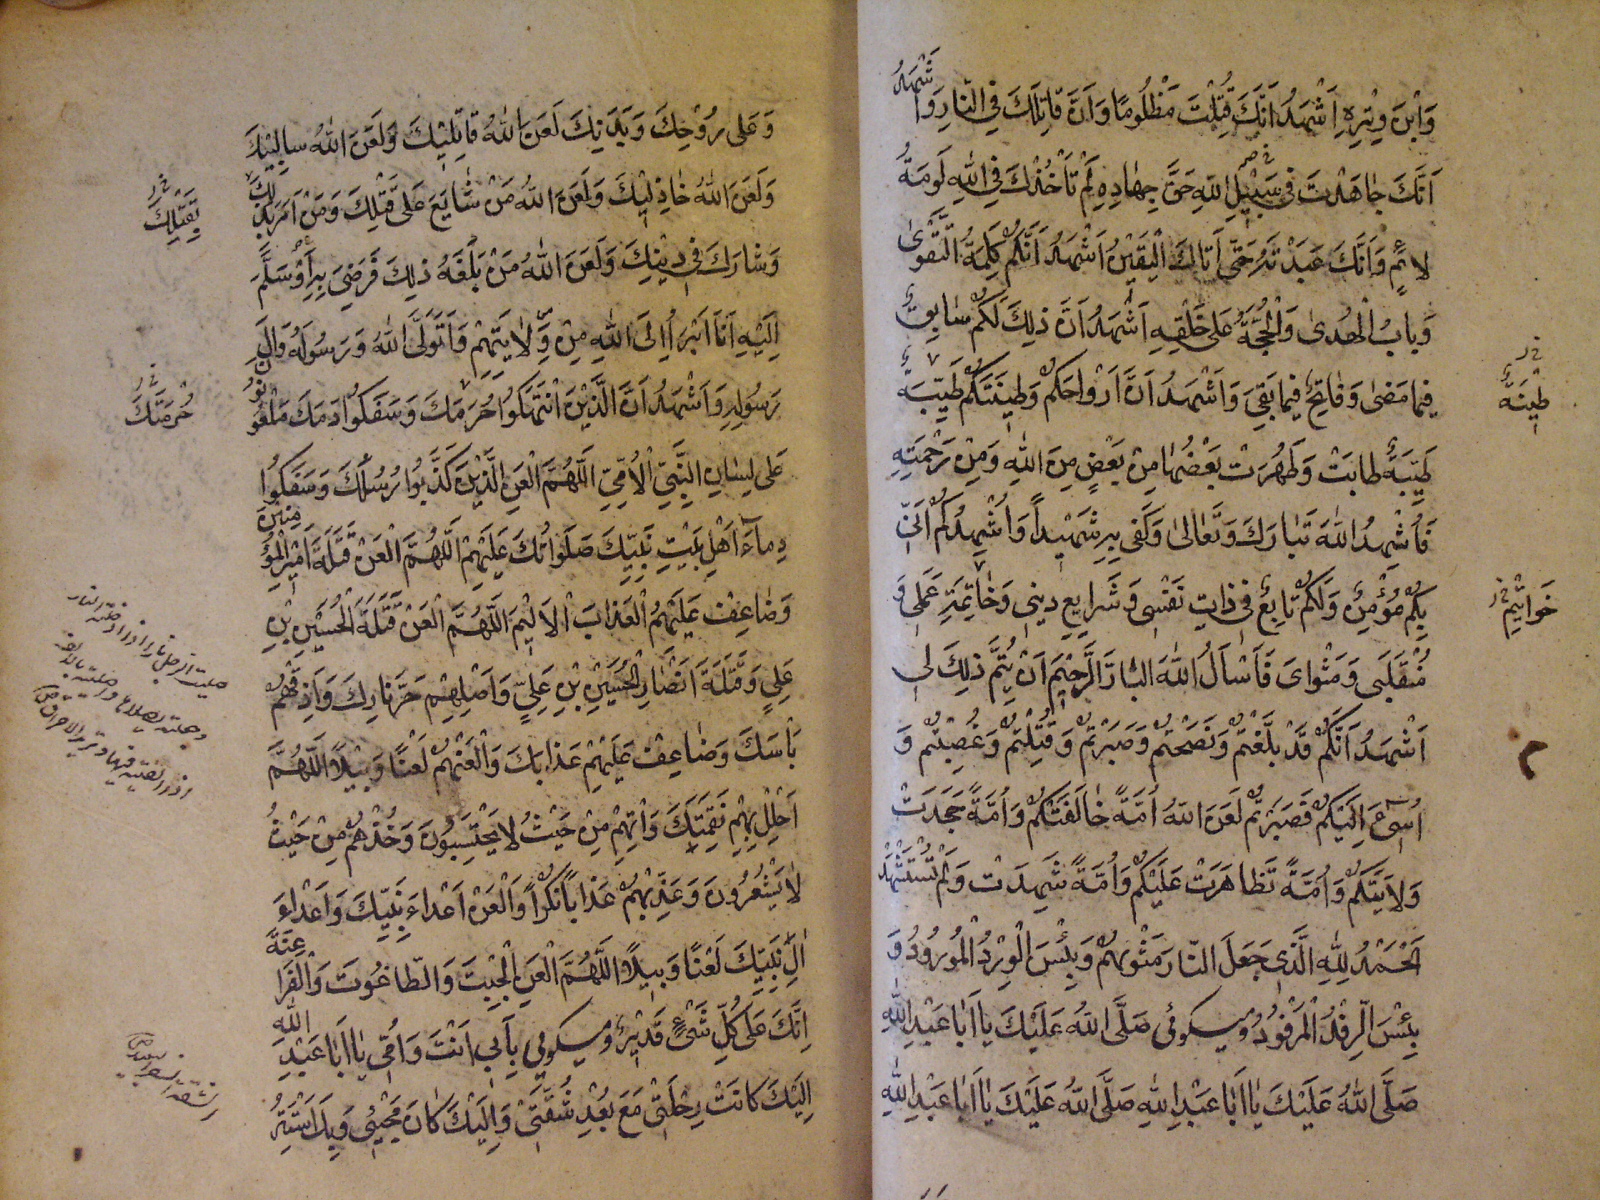 وَابْنَ وِتْرِهِ اَشْهَدُ اَنَّكَ قُتِلْتَ مَظْلُومًا وَاَنَّ قَاتِلَكَ فِي النَّارِ وَاَشْهَدُ
اَنَّكَ جَاهَدْتَ فِي سَبِيْلِ اللهِ حَقَّ جِهَادِهِ لَمْ تَأْخُذْكَ فِي اللهِ لَوْمَةُ
لَائِمٍ وَاَنَّكَ عَبَدْتَهُ حَتَّى اَتَاكَ الْيَقِيْنُ اَشْهَدُ اَنَّكُمْ كَلِمَةُ التَّقْوَى
وَبَابُ الْهُدَى وَالْحُجَّةُ عَلَى خَلْقِهِ اَشْهَدُ اَنَّ ذٰلِكَ لَكُمْ سَابِقٌ
فِيمَا مَضَى وَفَاتِحٌ فِيمَا بَقِيَ وَاَشْهَدُ اَنَّ اَرْوَاحَكُمْ وَطِينَتَكُمْ طَيِّبَةٌ
طِينَةٌ
طَيِّبَةٌ طَابَتْ وَطَهُرَتْ بَعْضُهَا مِنْ بَعْضٍ مِنَ اللهِ وَمِنْ رَحْمَتِهِ
فَاُشْهِدُ اللهَ تَبَارَكَ وَتَعَالَى وَكَفَى بِهِ شَهِيْدًا وَاُشْهِدُكُمْ اَنِّي
بِكُمْ مُؤْمِنٌ وَلَكُمْ تَابِعٌ فِي ذَاتِ نَفْسِي وَشَرَايِعِ دِينِي وَخَاتِمَةِ عَمَلِي وَ
خَوَاتِيْمِ
مُنْقَلَبِي وَمَثْوَايَ فَاَسْأَلُ اللهَ الْبَارَّ الرَّحِيْمَ اَنْ يُتِمَّ ذٰلِكَ لِي
اَشْهَدُ اَنَّكُمْ قَدْ بَلَّغْتُمْ وَنَصَحْتُمْ وَصَبَرْتُمْ وَقُتِلْتُمْ وَغُصِبْتُمْ وَ
اُسِيءَ اِلَيْكُمْ فَصَبَرْتُمْ لَعَنَ اللهُ اُمَّةً خَالَفَتْكُمْ وَاُمَّةً جَحَدَتْ
وَلَايَتَكُمْ وَاُمَّةً تَظَاهَرَتْ عَلَيْكُمْ وَاُمَّةً شَهِدَتْ وَلَمْ تُسْتَشْهَدْ
اَلْحَمْدُ لِلهِ الَّذِي جَعَلَ النَّارَ مَثْوٰيهُمْ وَبِئْسَ الْوِرْدُ الْمَوْرُودُ وَ
بِئْسَ الرِّفْدُ الْمَرْفُودُ وميكوئى صَلَّى اللهُ عَلَيْكَ يَا اَبَا عَبْدِ اللهِ
صَلَّى اللهُ عَلَيْكَ يَا اَبَا عَبْدِ اللهِ صَلَّى اللهُ عَلَيْكَ يَا اَبَا عَبْدِ اللهِ
وَعَلَى رُوْحِكَ وَبَدَنِكَ لَعَنَ اللهُ قَاتِلِيْكَ وَلَعَنَ اللهُ سَالِبِيْكَ
وَلَعَنَ اللهُ خَاذِلِيْكَ وَلَعَنَ اللهُ مَنْ شَايَعَ عَلَى قَتْلِكَ وَمَنْ اَمَرَ بِذٰلِكَ
بِقَتْلِكَ
وَشَارَكَ فِي دِيْنِكَ وَلَعَنَ اللهُ مَنْ بَلَغَهُ ذٰلِكَ فَرَضِيَ بِهِ اَوْ سَلَّمَ
اِلَيْهِ اَنَا اَبْرَأُ اِلَى اللهِ مِنْ وَلَايَتِهِمْ وَاَتَوَلَّى اللهَ وَرَسُولَهُ وَآلَ
رَسُولِهِ وَاَشْهَدُ اَنَّ الَّذِيْنَ انْتَهَكُوا حُرَمَكَ وَسَفَكُوا دَمَكَ مَلْعُونُونَ
حُرْمَتَكَ
عَلَى لِسَانِ النَّبِيِّ الْاُمِّيِّ اَللّٰهُمَّ الْعَنِ الَّذِيْنَ كَذَّبُوا رُسُلَكَ وَسَفَكُوا
دِمَاءَ اَهْلِ بَيْتِ نَبِيِّكَ صَلَوَاتُكَ عَلَيْهِمْ اَللّٰهُمَّ الْعَنْ قَتَلَةَ اَمِيْرِ الْمُؤْمِنِيْنَ
وَضَاعِفْ عَلَيْهِمُ الْعَذَابَ الْاَلِيْمَ اَللّٰهُمَّ الْعَنْ قَتَلَةَ الْحُسَيْنِ بْنِ
عَلِيٍّ وَقَتَلَةَ اَنْصَارِ الْحُسَيْنِ بْنِ عَلِيٍّ وَاَصْلِهِمْ حَرَّ نَارِكَ وَاَذِقْهُمْ
بَأْسَكَ وَضَاعِفْ عَلَيْهِمْ عَذَابَكَ وَالْعَنْهُمْ لَعْنًا وَبِيْلًا اَللّٰهُمَّ
اَحْلِلْ بِهِمْ نَقِمَتَكَ وَاْتِهِمْ مِنْ حَيْثُ لَا يَحْتَسِبُونَ وَخُذْهُمْ مِنْ حَيْثُ
لَا يَشْعُرُونَ وَعَذِّبْهُمْ عَذَابًا نُكْرًا وَالْعَنْ اَعْدَاءَ نَبِيِّكَ وَاَعْدَاءَ
آلِ نَبِيِّكَ لَعْنًا وَبِيلًا اَللّٰهُمَّ الْعَنِ الْجِبْتَ وَالطَّاغُوتَ وَالْفَرَاعِنَةَ
اِنَّكَ عَلَى كُلِّ شَيْءٍ قَدِيْرٌ وميكويى بِاَبِي اَنْتَ وَاُمِّي يَا اَبَا عَبْدِ اللهِ
اِلَيْكَ كَانَتْ رِحْلَتِي مَعَ بُعْدِ شُقَّتِي وَاِلَيْكَ كَانَ مَجِيْئِي وَبِكَ اَسْتَتِرُ